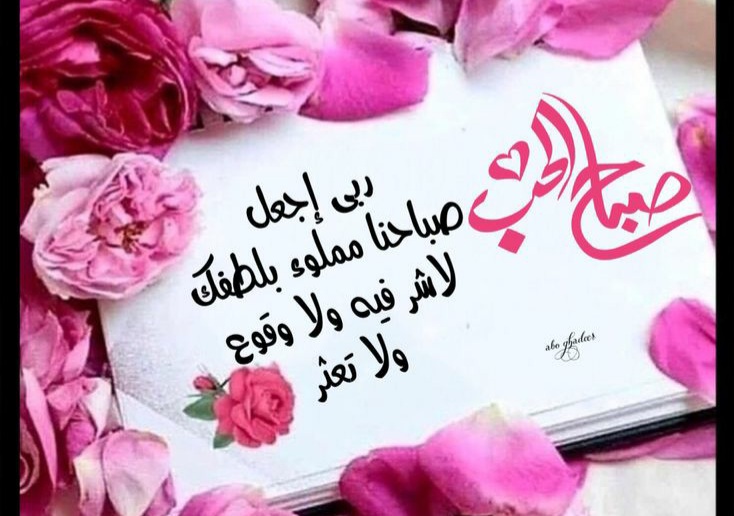 صباح الحب
ربى إجعل
صباحنا مملوء بلطفك
لاشر فيه ولا وقوع
ولا تعثر
abo ghadeer